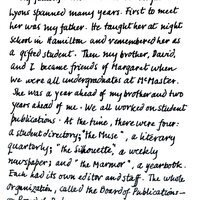 Lyons spanned many years. First to meet
her was my father. He taught her at night
school in Hamilton and remembered her as
a gifted student. Then my brother, David,
and I became friends of Margaret when
we were all undergraduates at McMaster.
She was a year ahead of my brother and two
years ahead of me. We all worked on student
publications. At the time, there were four:
a student directory; "The Muse", a literary
quarterly; "The Silhouette", a weekly
newspaper; and "The Marmor", a yearbook.
Each had its own editor and staff. The whole
organization, called the Board of Publications—